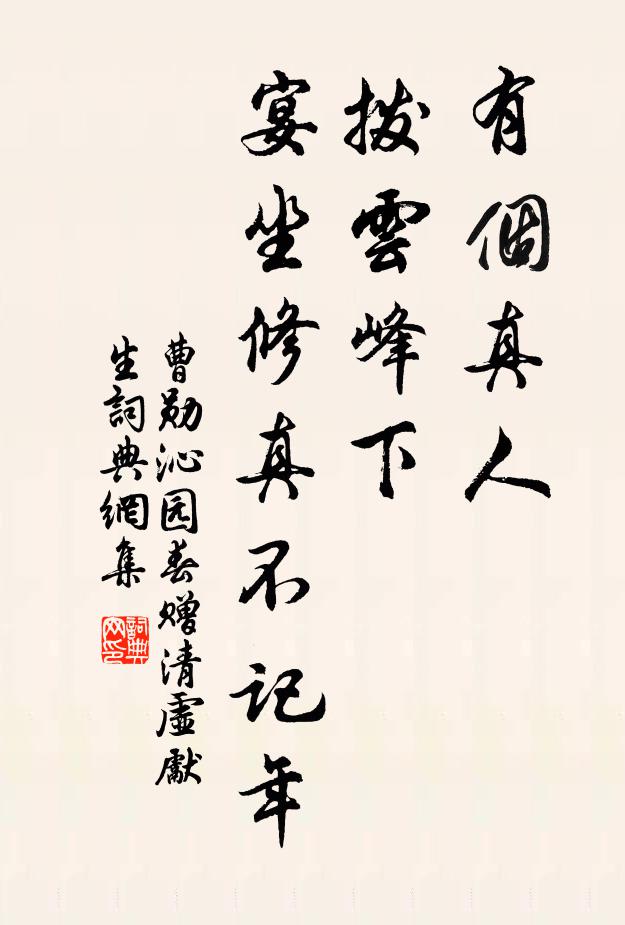 有個真人
撥雲峰下
宴坐修真不記年
曹勋沁园春赠清虛獻
生詞典網集
詞典
网印